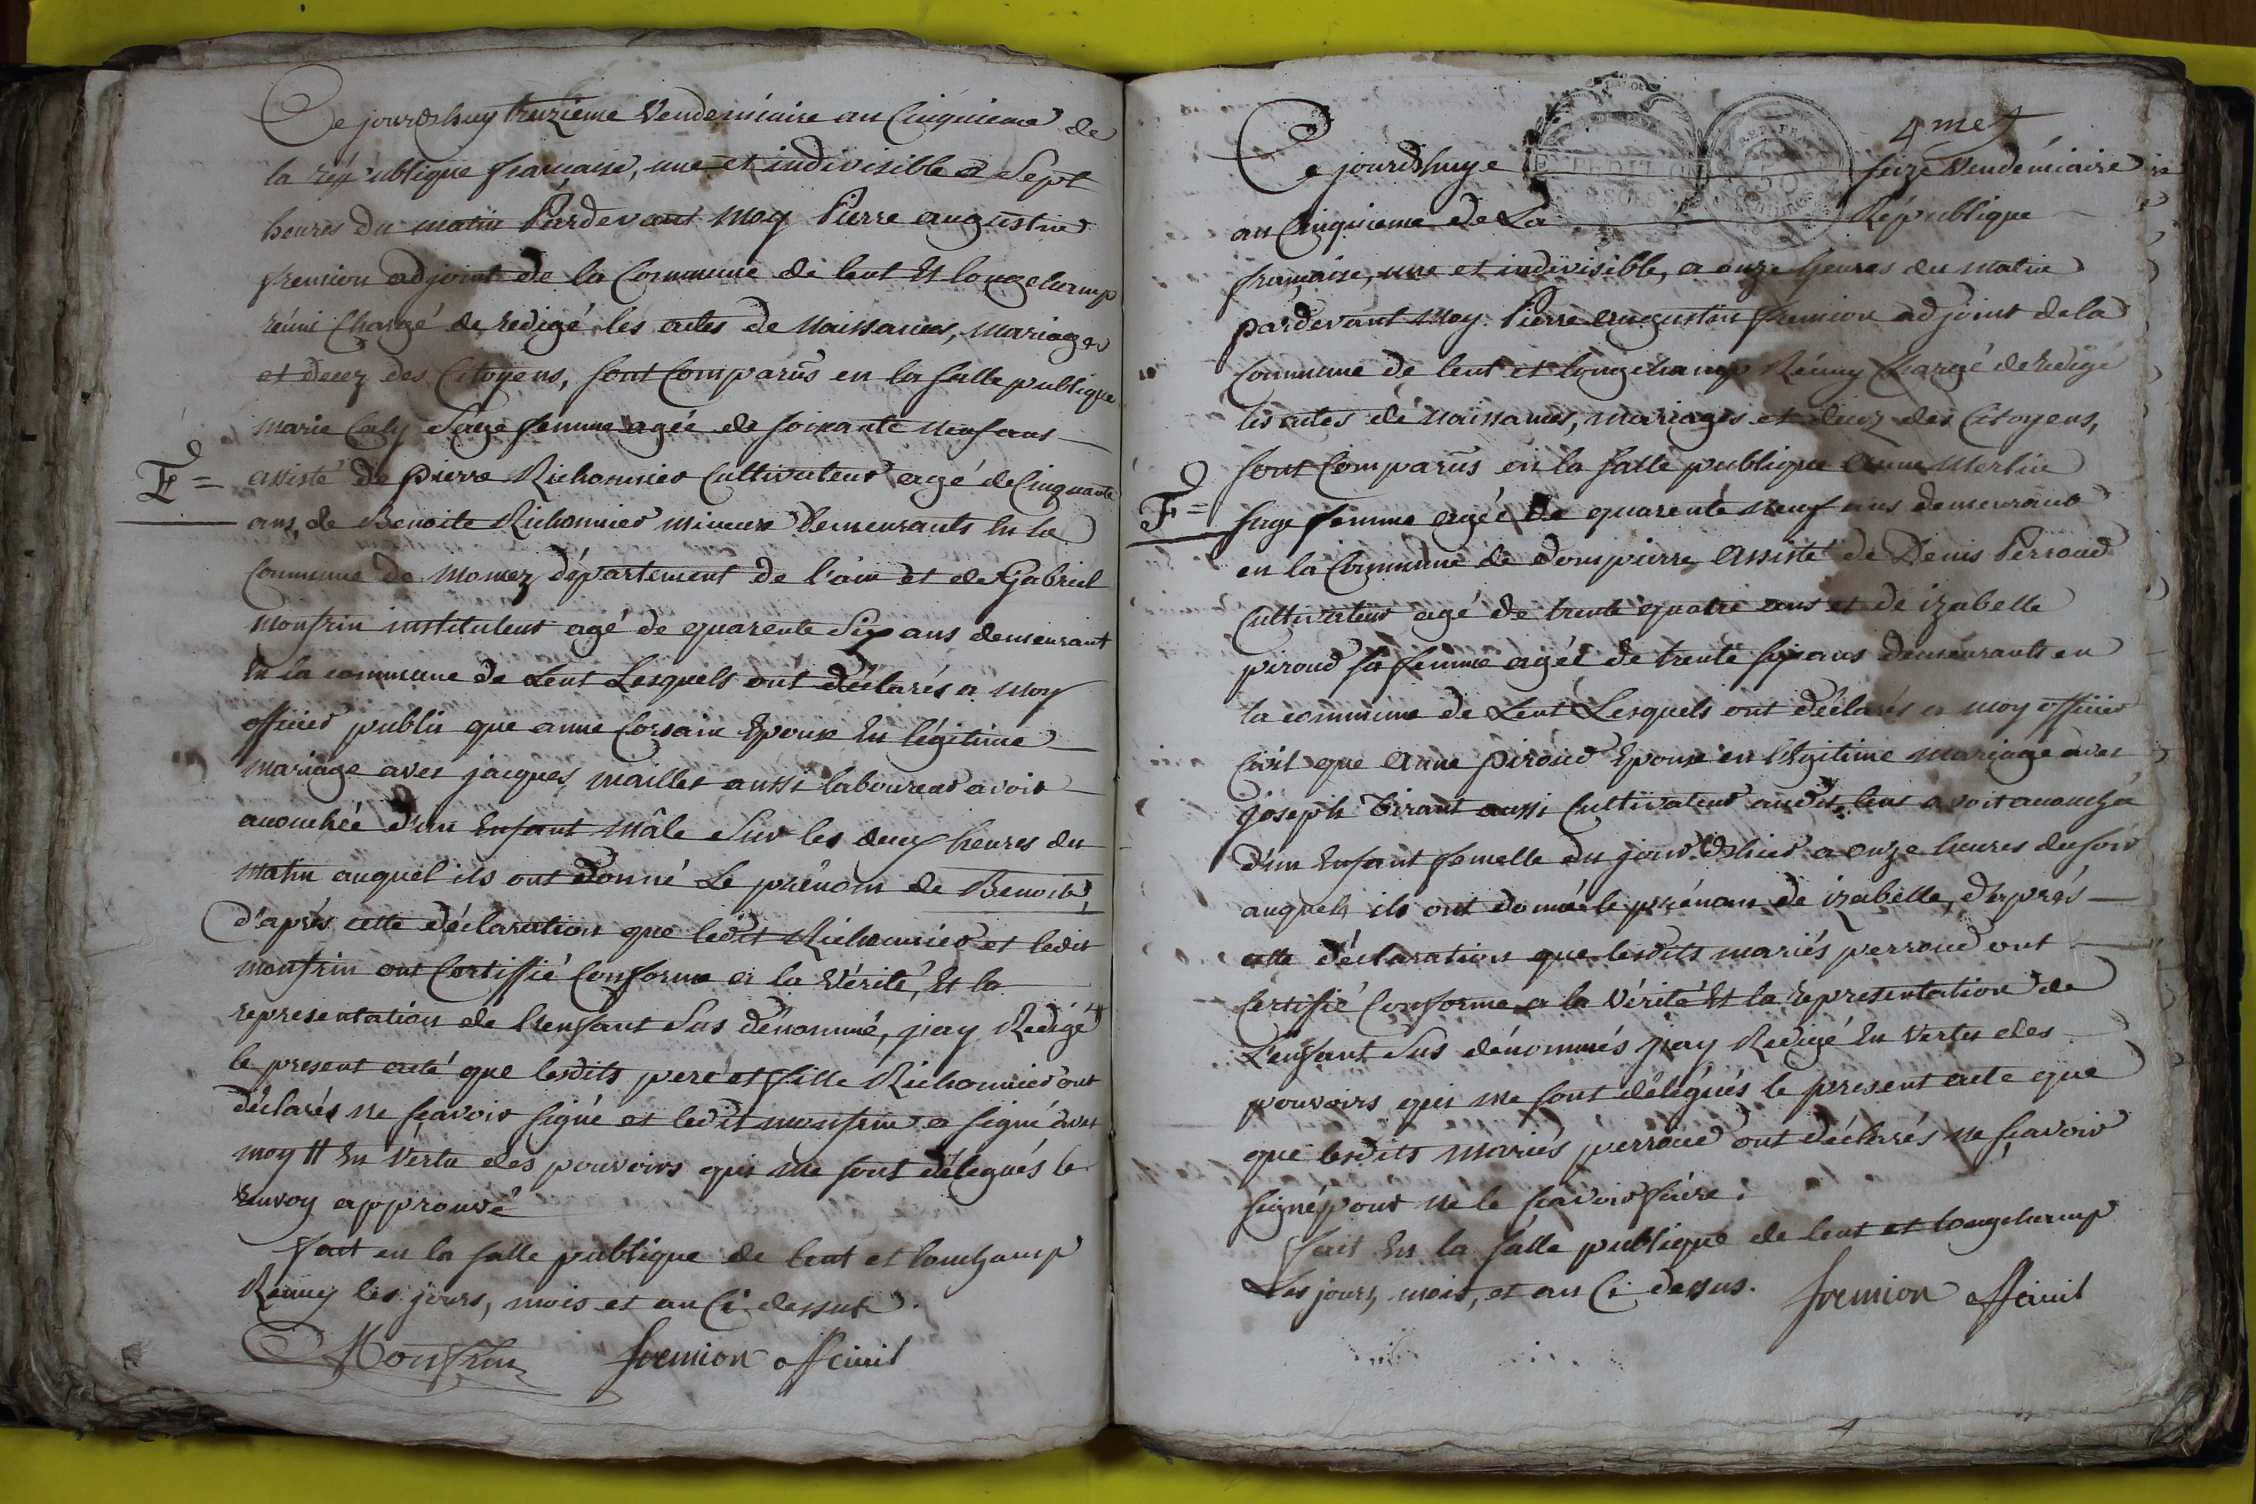 Ce jourdhuy treizieme Vendemiaire an Cinquieme de
la république française, une et indivisible a Sept
heures du matin Pardevant Moy Pierre augustin
fremion adjoint de la Commune de lent Et longchamp
réuni Chargé de redigé les actes de Naissances, Mariages
et decez des Citoyens, sont Comparus en la salle publique
marie Caly Sage femme agée de soixante neuf ans
assisté de pierre Richonnier Cultivateur agé de Cinquante
F =
ans, de Benoite Richonnier mineure Demeurants En la
Commune de département de l'ain et de Gabriel
Monfrin instituteur agé de quarente Six ans demeurant
En la commune de Lent Lesquels ont déclarés a Moy
officier public que anne Corsain Epouse En légitime
mariage avec jacques maillet aussi laboureur avoir
accouchée d'un Enfant Mâle Sur les deux heures du
matin auquel ils ont donné Le prénom de Benoit,
D'après cette déclaration que ledit Richonnier et ledit
monfrin ont Certiffié Conforme a la Vérité, Et la
representation de l'enfant Sus dénommé, j'ay Redigé #
le present acte que lesdits pere et fille Richonnier ont
déclarés ne sçavoir signé et ledit monfrin a signé avec
moy # En Vertu des pouvoirs qui me sont délegués le
renvoy approuvé
fait en la salle publique de lent et lonchamp
Reuny les jours, mois et an Ci dessus.
Monfrin fremion off civil
4me
Ce jourdhuye seize Vendémiaire
an Cinquieme de La République
française, une et indivisible, a onze heures du matin
pardevant Moy Pierre augustin fremion adjoint de la
Commune de lent et longchamp Réuny Chargé de redigé
les actes de Naissances, mariages et decez des Citoyens,
sont Comparus en la salle publique anne Merlin
F =
sage femme agée de quarente neuf ans demeurant
en la Commune de dompierre assisté de Denis Perroud
Cultivateur agé de trente quatre ans et de izabelle
piroud sa femme agée de trente six ans demeurants en
la commune de Lent Lesquels ont déclarés a moy officier
Civil que anne piroud Epouse en légitime Mariage avec
joseph Tirant aussi Cultivateur audit lent avoit accouché
d'un Enfant femelle du jour d'hier a onze heures du soir
auquel ils ont donné le prénom de izabelle, d'après
cette déclaration que lesdits mariés perroud ont
Certifié Conforme a la Vérité Et la representation de
L'enfant Sus dénommés j'ay Redigé En Vertu des
pouvoirs qui me sont délégués le present acte que
que lesdits Mariés perroud ont déclarés ne sçavoir
signé pour ne le sçavoir faire.
fait En la salle publique de lent et longchamp
Les jours, mois, et an Ci dessus. fremion off civil